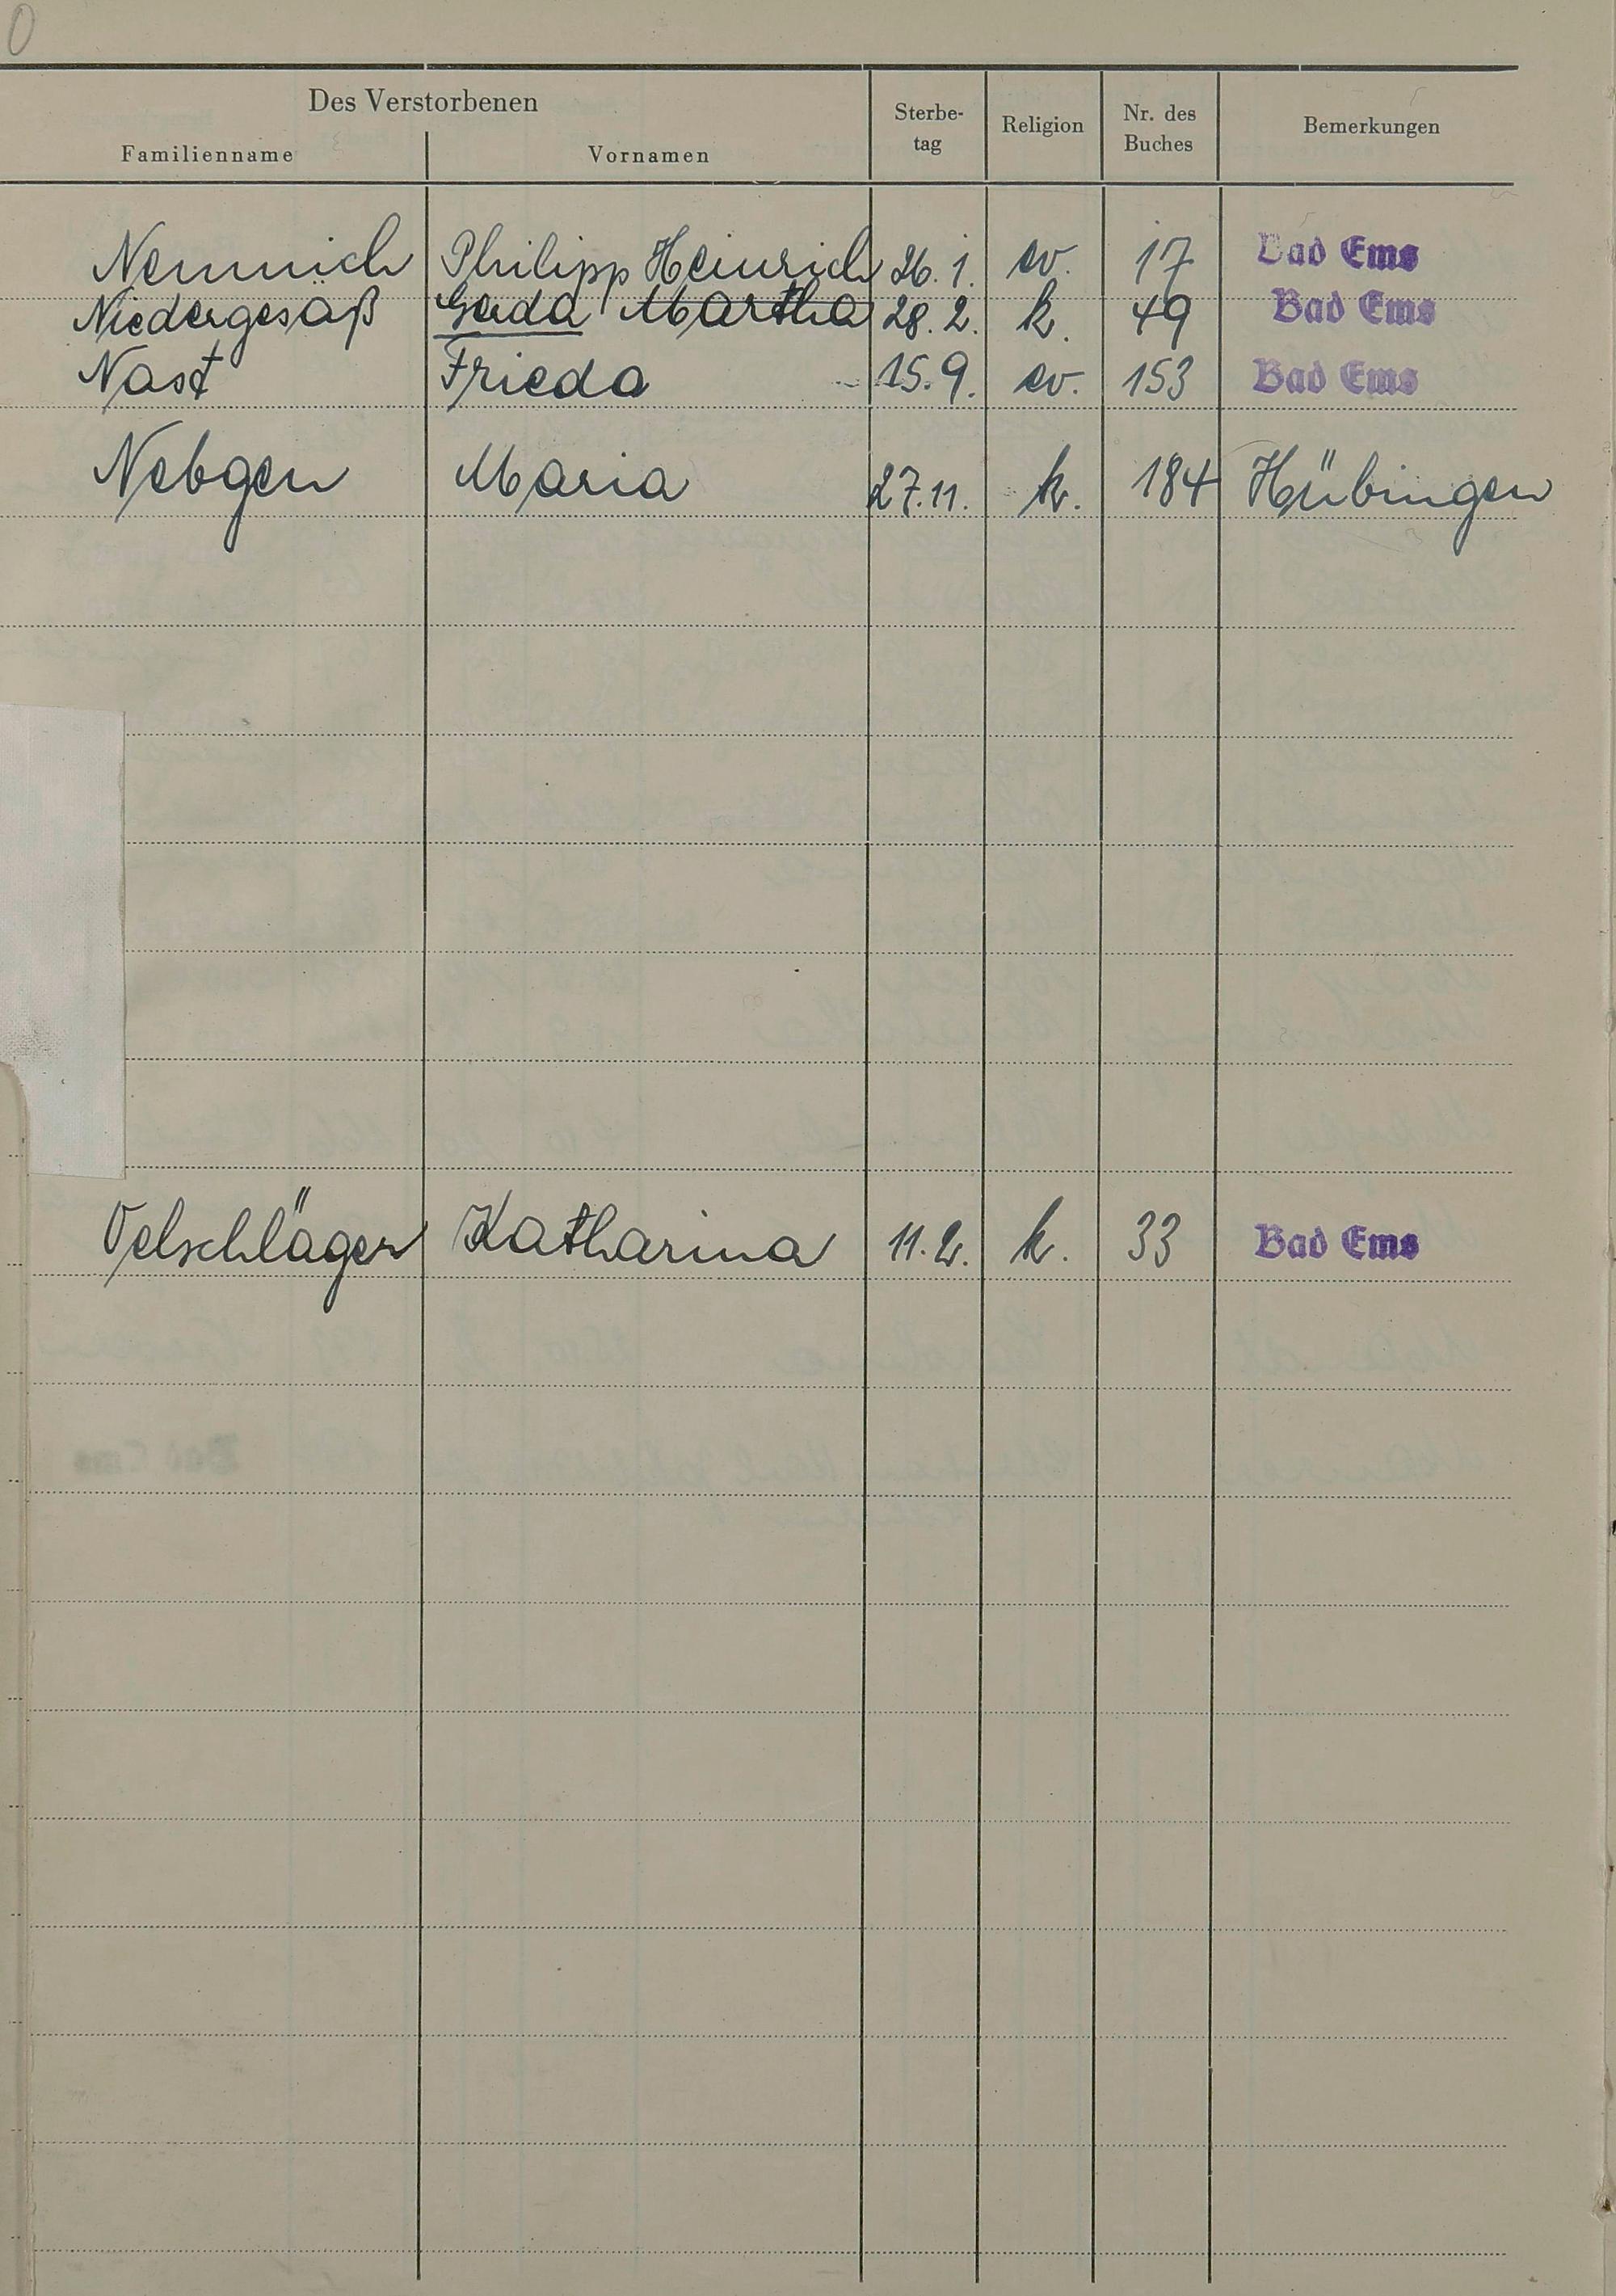 0
Des Verstorbenen
Familienname Vornamen Sterbe-tag Religion Nr. des Buches Bemerkungen
Nemnich Philipp Heinrich 26.1. ev. 17 Bad Ems
Niedergesäß Gerda Martha 28.2. k. 49 Bad Ems
Nast Frieda 15.9. ev. 153 Bad Ems
Nebgen Maria 27.11. k. 184 Hübingen
Oelschläger Katharina 11.2. k. 33 Bad Ems